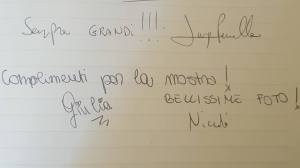 Sempre GRANDI!!!
Complimenti per la mostra!
Giulia
BELLISSIME FOTO!
Nicolò